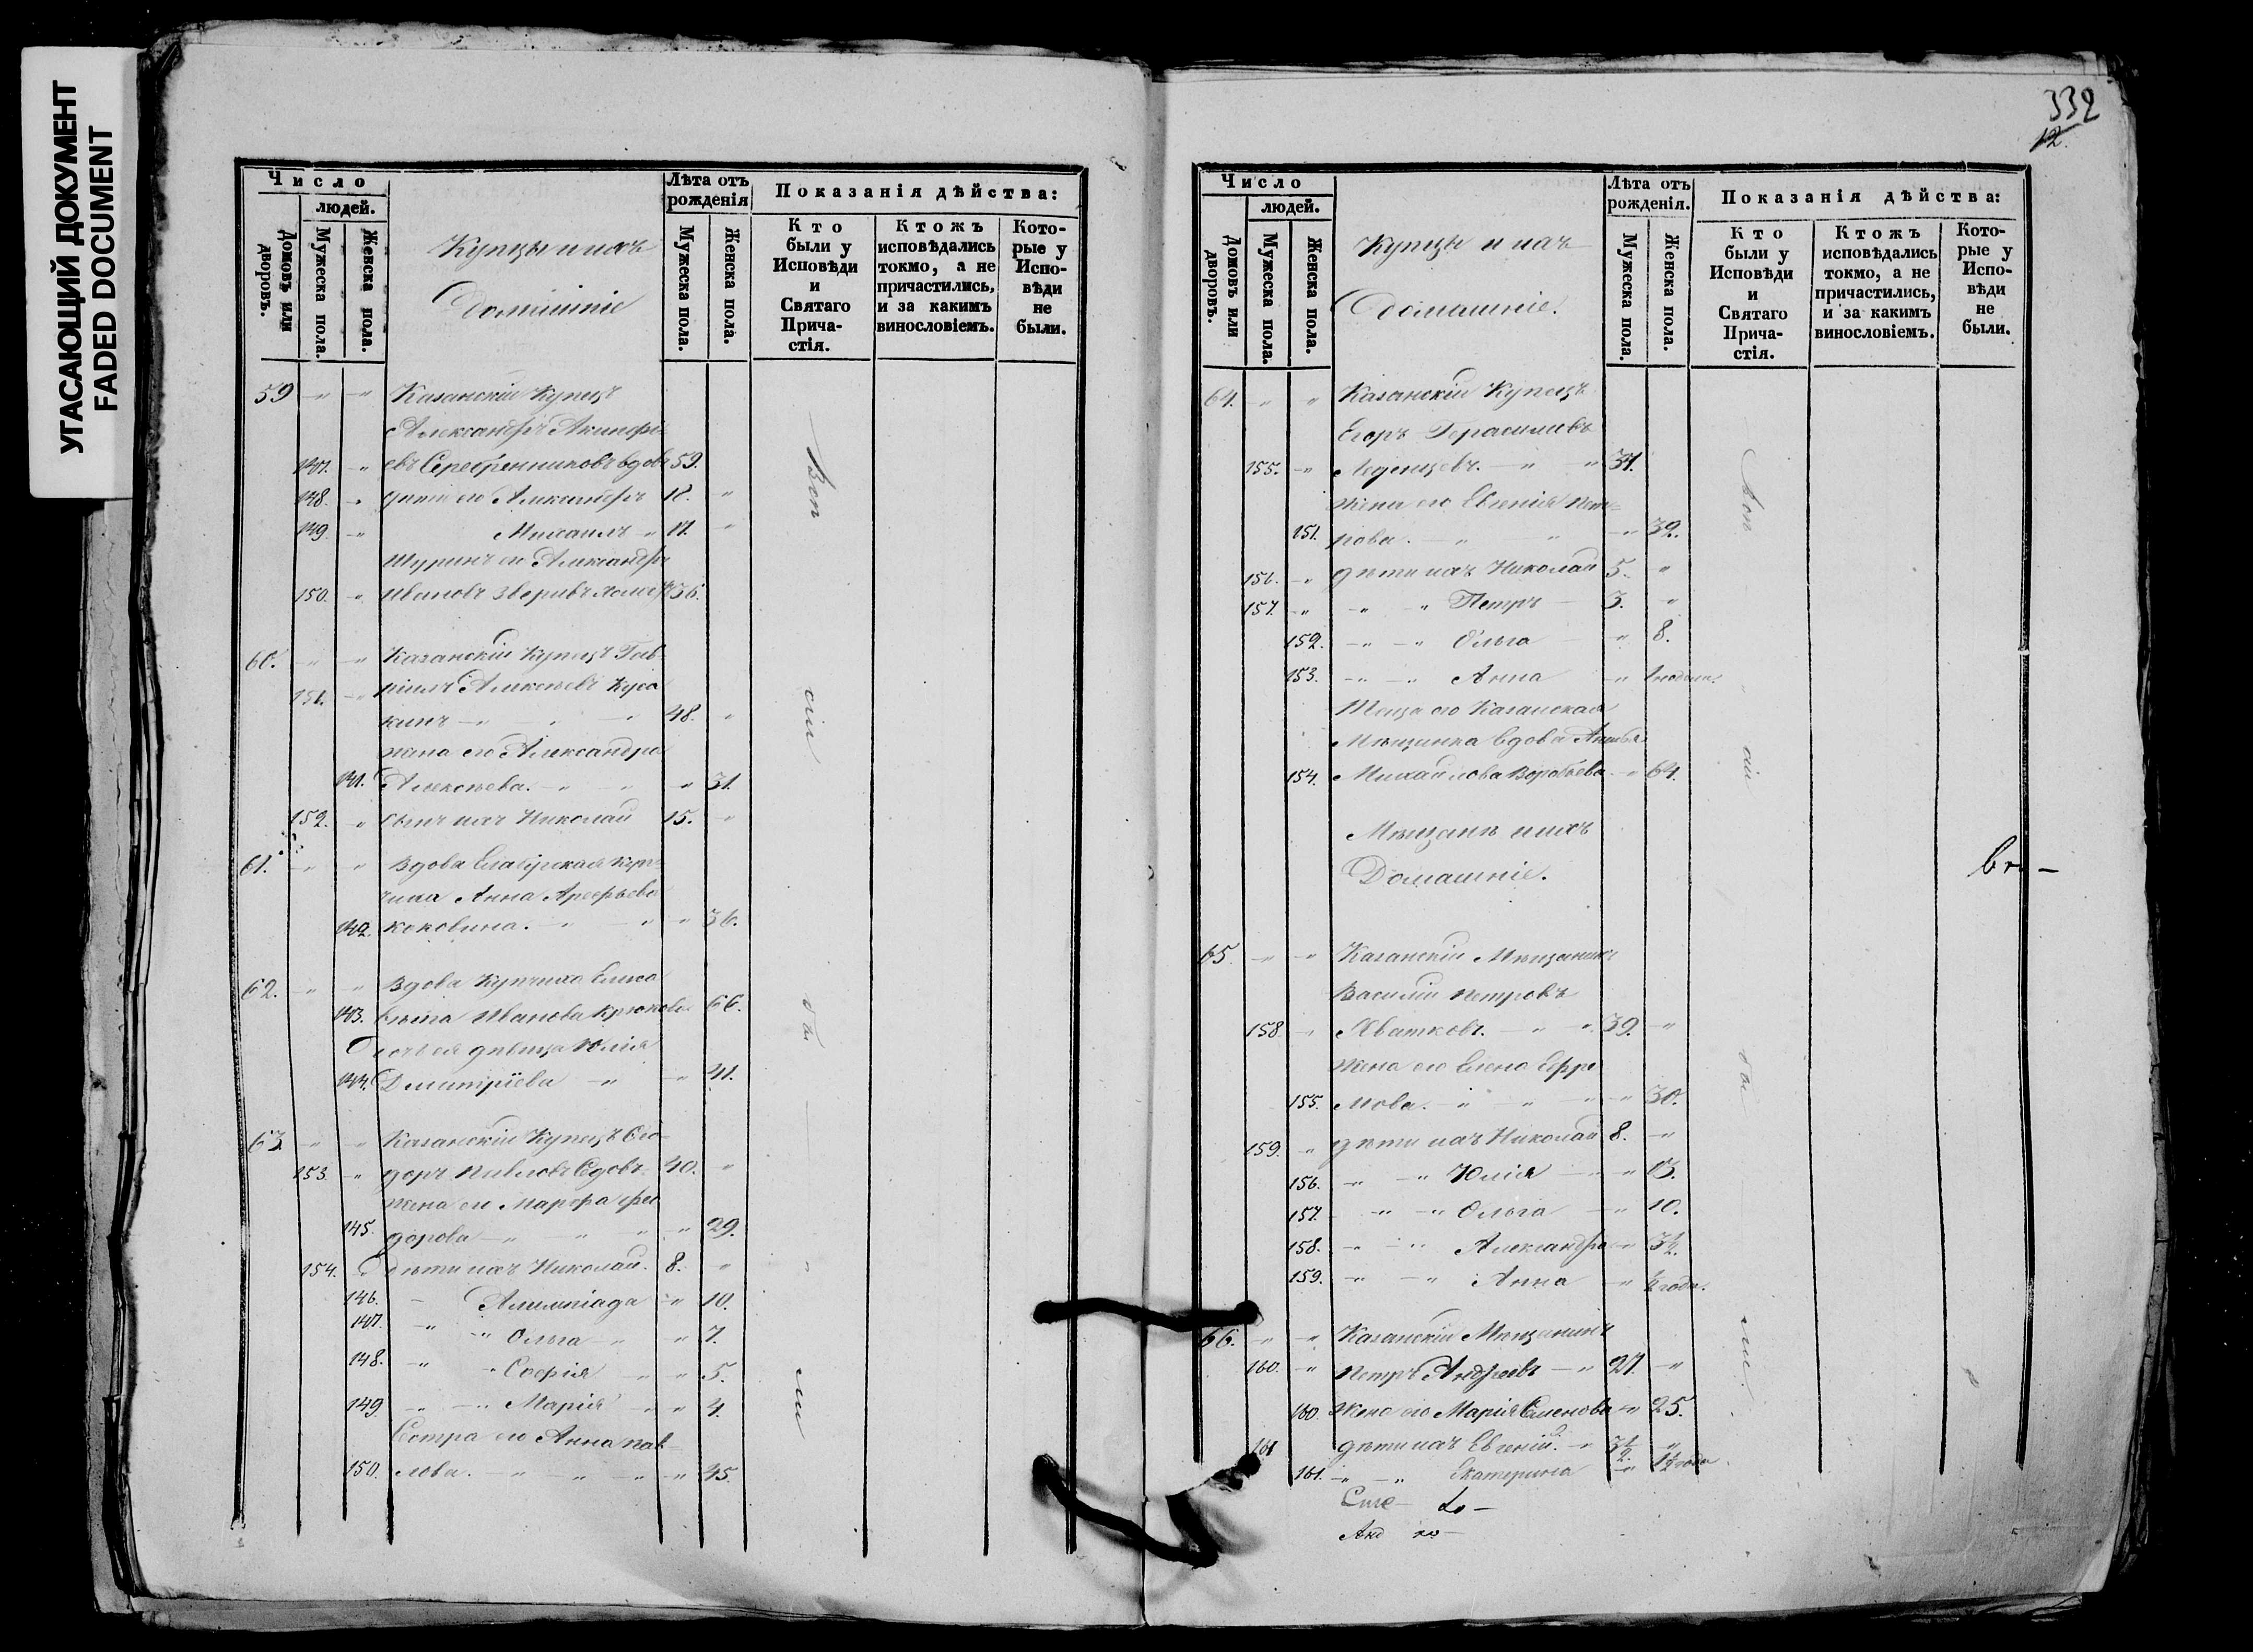 УГАСАЮЩИЙ ДОКУМЕНТ
FADED DOCUMENT
Число
людей.
Домовъ или дворовъ.
Мужеска пола.
Женска пола.
Купцы и ихъ
Домашніе
Лѣта отъ рожденія
Мужеска пола.
Женска пола.
Показанія дѣйства:
Кто были у Исповѣди и Святаго Прича-стія.
Ктожъ исповѣдались токмо, а не причастились, и за какимъ винословіемъ.
Кото-рые у Испо-вѣди не были.
59 " " Казанскій Купецъ
Александръ Акинфі
147. " евъ Серебренниковъ вдовъ 59.
148. " дѣти его Александръ 18. "
149. " Михаилъ " 11. "
Шуринъ его Александръ
150. " Ивановъ Зверивъ холос 36.
60. " " Казанскій Купецъ Гав-
151. " ріилъ Алексѣевъ Куса
кинъ " " 48. "
жена его Александра
141. Алексѣева. " " " 31.
152. " сынъ ихъ Николай 15. "
61. " " Вдова Елабужская Куп
чиха Анна Арефьева
142. Коковина. " " " 36.
62. " " Вдова Купчиха Елиса
143. вѣта Иванова Крюкова 66.
Дочь ея дѣвица Юлія
144. Дмитріева " " 41.
63 " " Казанскій Купецъ Ѳео-
153. " доръ Павловъ Вдовъ 40. "
жена его Марфа Фео
145. дорова " " " " 29.
154. " дѣти ихъ Николай. 8. "
146. Алимпіада " 10.
147. " " Ольга " " 7.
148. " " Софія " " 5.
149. " " Марія " " 4.
Сестра его Анна Пав-
150. лова. " " " " 45.
332
12.
Число
людей.
Домовъ или дворовъ.
Мужеска пола.
Женска пола.
Купцы и ихъ
Домашніе.
Лѣта отъ рожденія.
Мужеска пола.
Женска пола.
Показанія дѣйства:
Кто были у Исповѣди и Святаго Прича-стія.
Ктожъ исповѣдались токмо, а не причастились, и за какимъ винословіемъ.
Кото-рые у Испо-вѣди не были.
64. " " Казанскій Купецъ
Егоръ Герасимовъ
155. " Леденцевъ. " " 34.
жена его Евгенія Пет-
151. рова. " " " 32.
156. " дѣти ихъ Николай 5. "
157. " " " Петръ 3. "
152. " " Ольга " 8.
153. " " Анна "
Теща его Казанская
Мѣщанка вдова
154. Михайлова Воробьева " 64.
Мѣщане и ихъ
Домашніе.
65. " " Казанскій Мѣщанинъ
Василій Петровъ
158. " Хватковъ. " " 39. "
жена его Елена Ефре
155. мова. " " " " 30.
159. " дѣти ихъ Николай 8. "
156. " " Юлія " " 13.
157. " " Ольга " 10.
158. " " Александра " 3½.
159. " " Анна " ½ года.
66. " " Казанскій Мѣщанинъ
160. " Петръ Андреевъ " 27. "
160. жена его Марія Семенова " 25.
161 дѣти ихъ Евгеній. " 3½. "
161. " " Екатерина " 1½ года